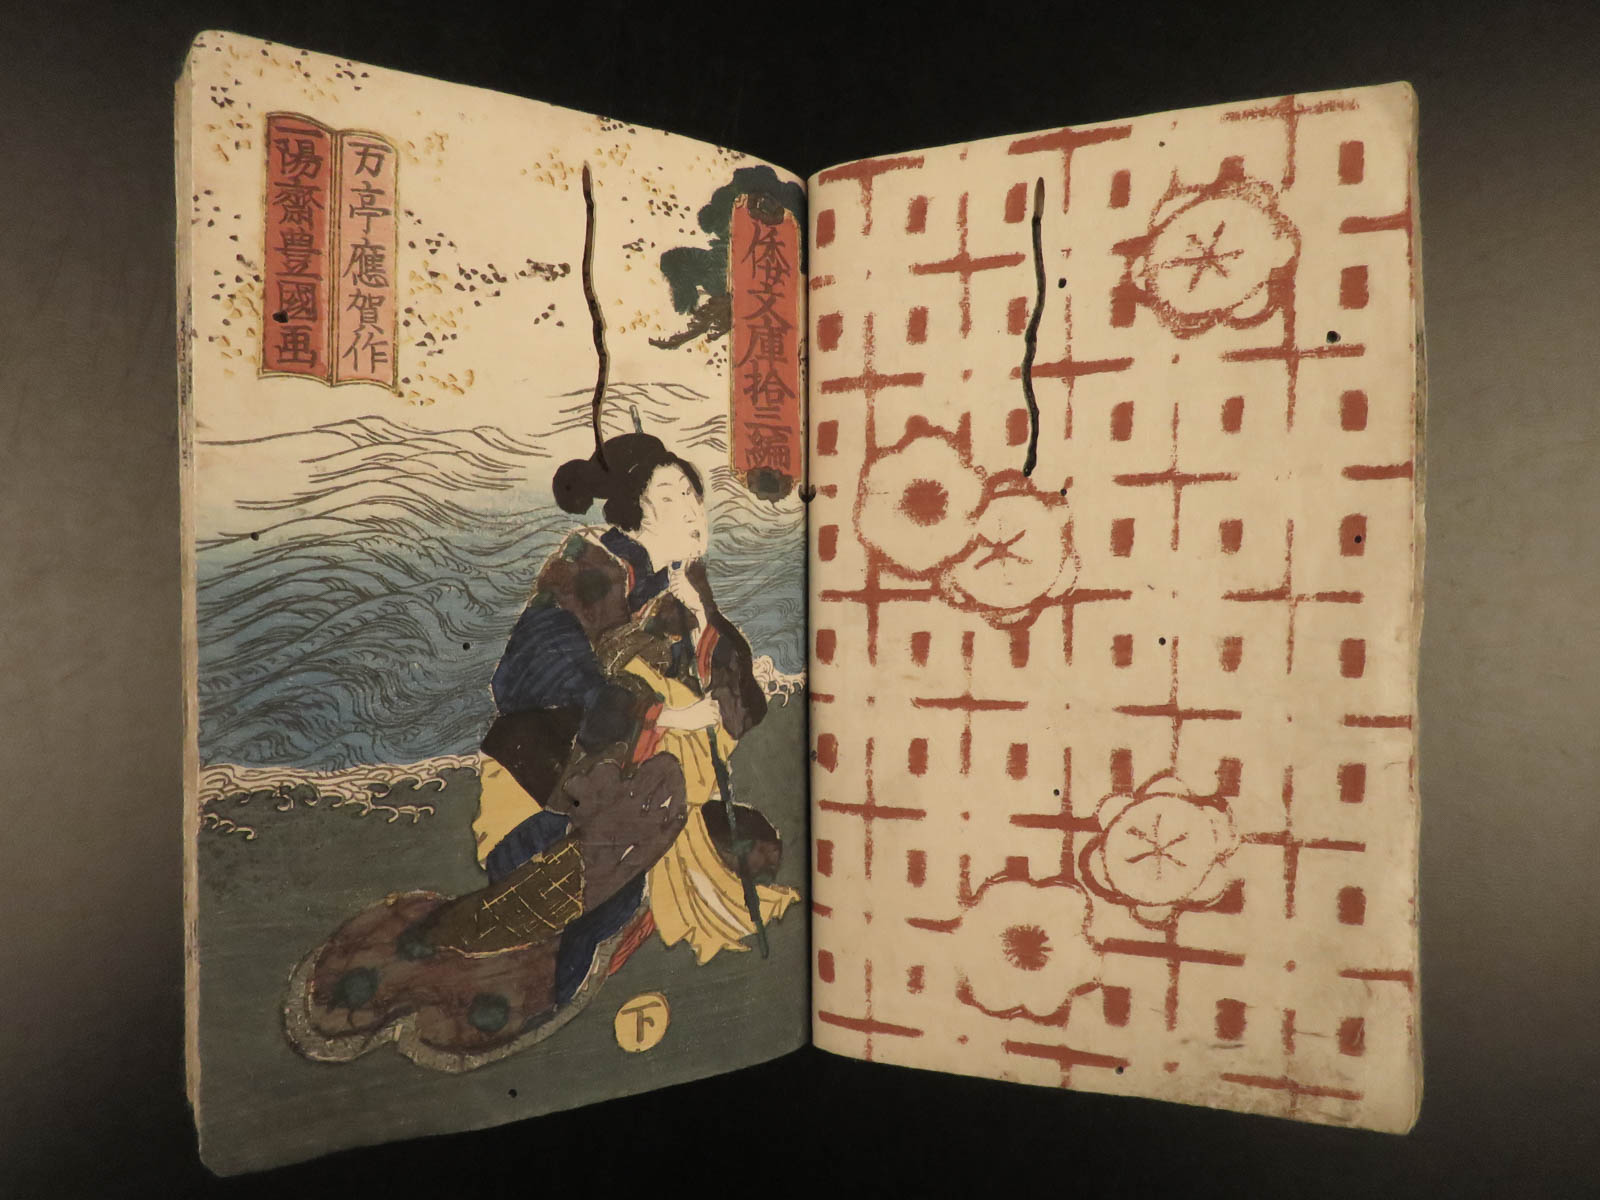 倭文庫拾三編
万亭應賀作
一陽齋豊國画
下